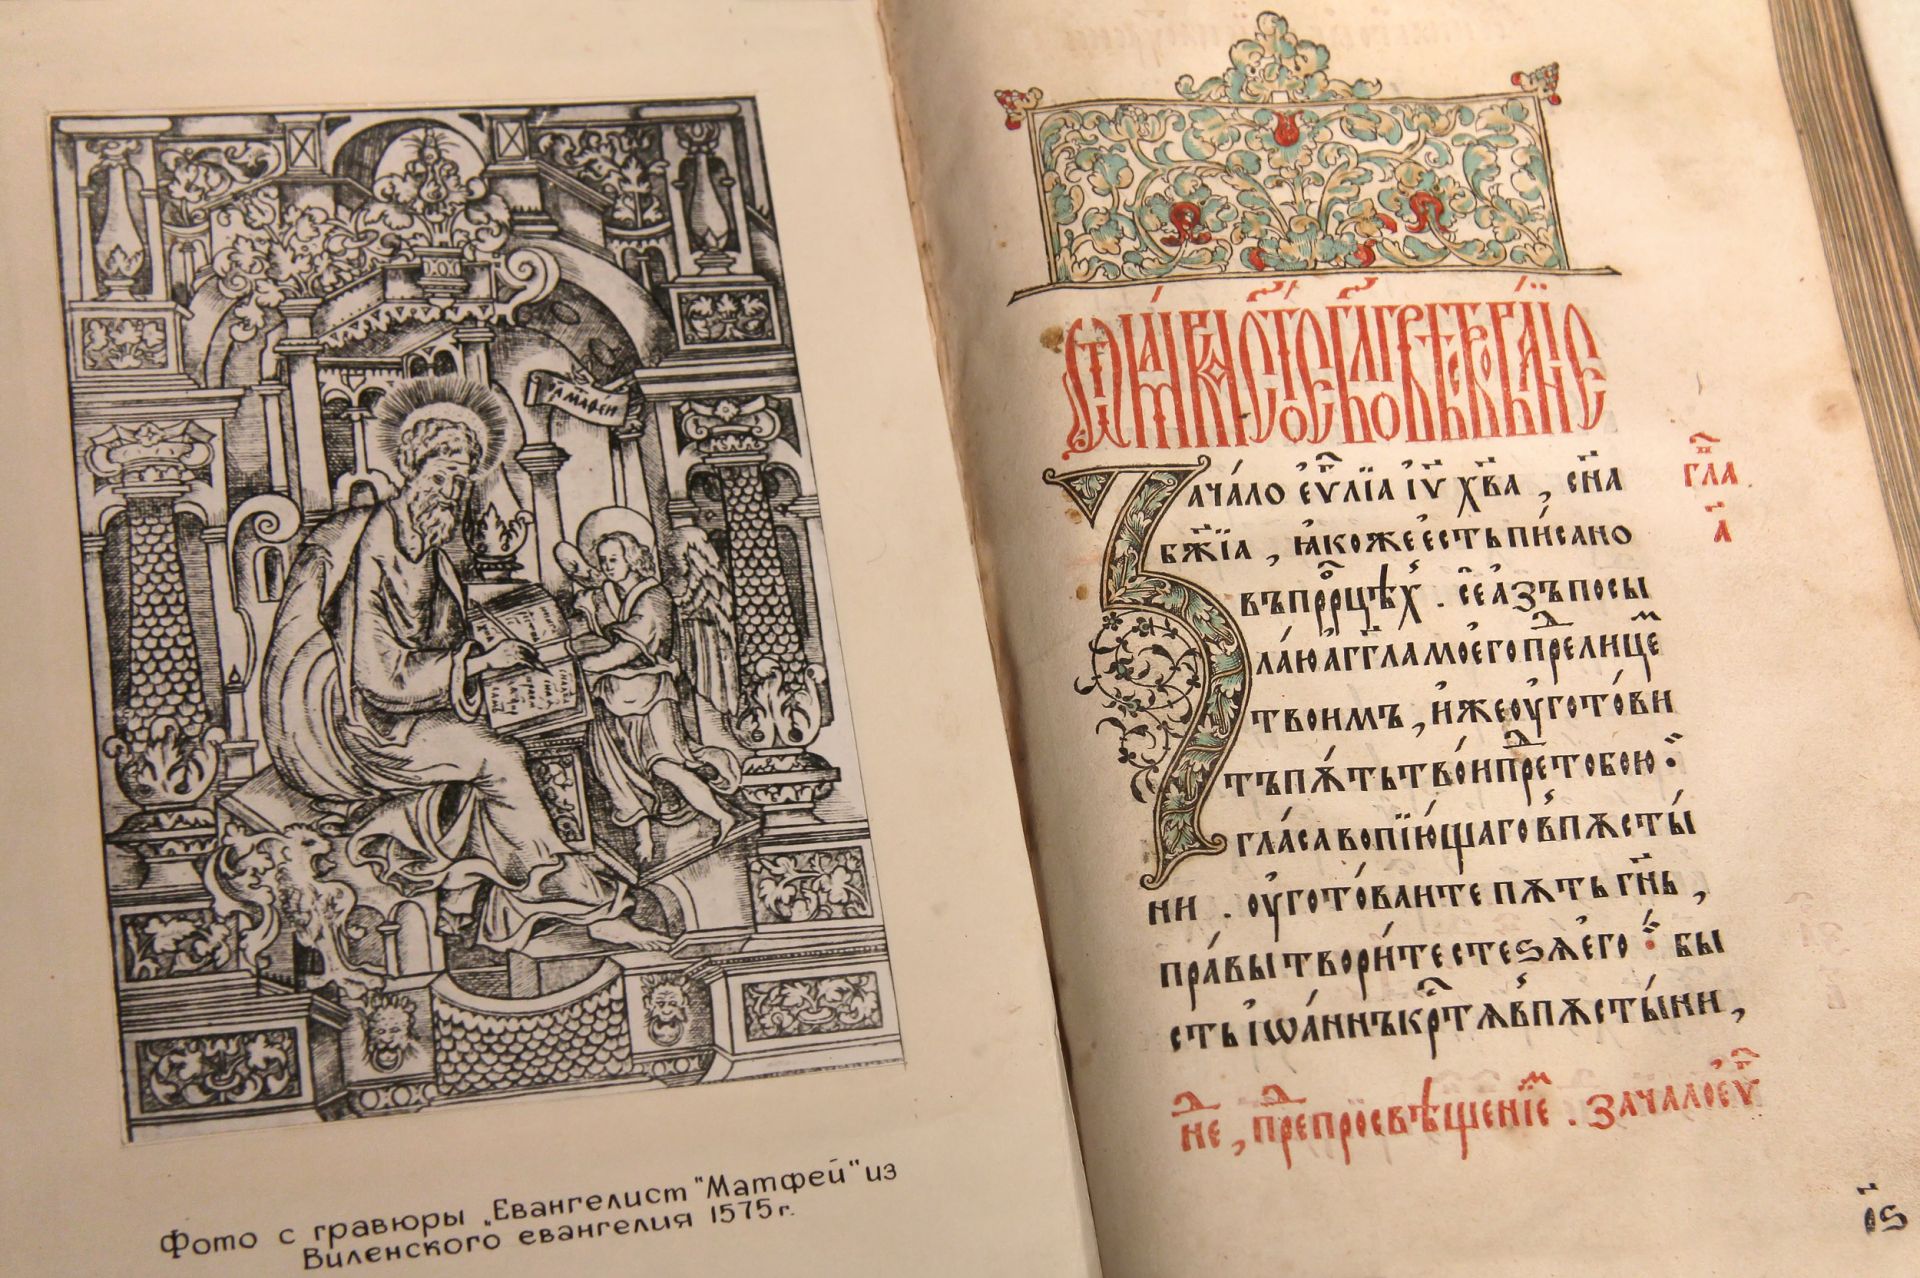 Фото с гравюры „Евангелист "Матфей" из
Виленского евангелия 1575 г.
МАТѲЕЙ
Зача́ло є҆ѵⷢ҇лїа і҆ѵⷭ҇ хⷭ҇ва , сн҃а
бж҃їа , ꙗ҆коже є҆сть пи́сано
въ прⷪ҇рцѣхъ . се а҆зъ посы
ла́ю а҆гг҃ла моего преⷣ лицеⷨ
твоимъ , и҆же оу҆гото́ви
тъ пꙋ́ть тво́и преⷣ тобою :
гла́съ вопїю́щаго в пꙋсты́
ни . оу҆гото́ваите пꙋ́ть гⷭ҇нь ,
пра́вы твори́те стеѕѧ є҆го : бы
сть і҆ѡа́ннъ крⷭ҇тѧ в пꙋсты́ни ,
гла
а҃
неⷣ , преⷣ просвѣщенїеⷨ . зачало є҆ѵⷢ҇
ѕ҃і